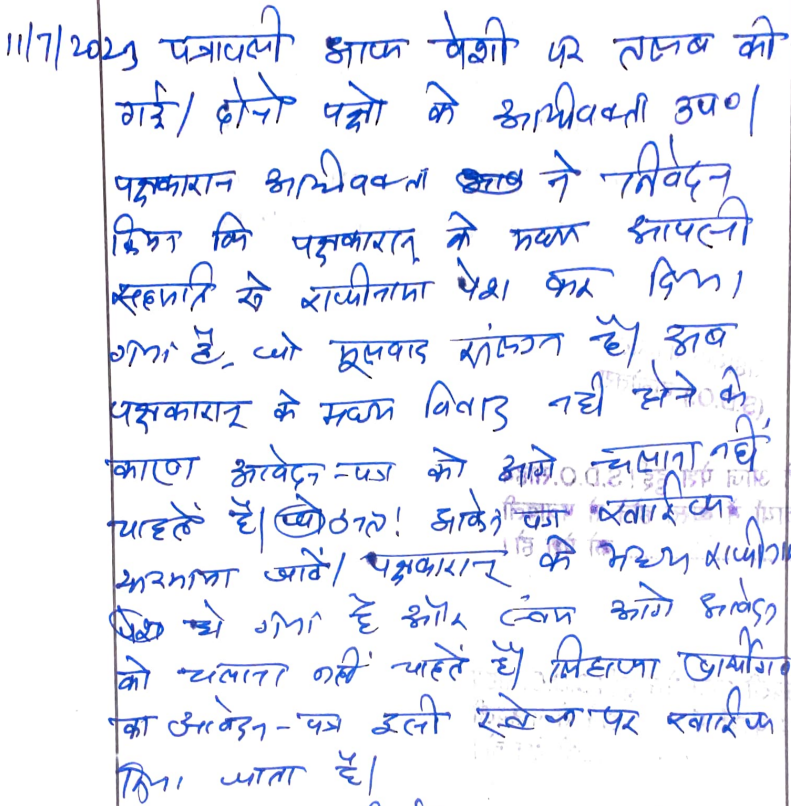 11/7/2023 पत्रावली आज पेशी पर तलब की
गई। दोनो पक्षो के अधीवक्ता उप०।
पक्षकारान अधीवक्ता ने निवेदन
किया कि पक्षकारान के मध्य आपसी
सहमति से राजीनामा पेश कर दिया
गया है, जो मूलवाद संलग्न है। अब
पक्षकारान के मध्य विवाद नही होने के
कारण आवेदन-पत्र को आगे चलाना नहीं
चाहतें है। आवेदन पत्र खारीज
फरमाया जावें। पक्षकारान के मध्य राजीना
पेश हो गया है और स्वंय आगे आवेदन
को चलाना नहीं चाहतें है। लिहाजा प्रार्थीगण
का आवेदन-पत्र इसी स्टेज पर खारीज
किया जाता है।